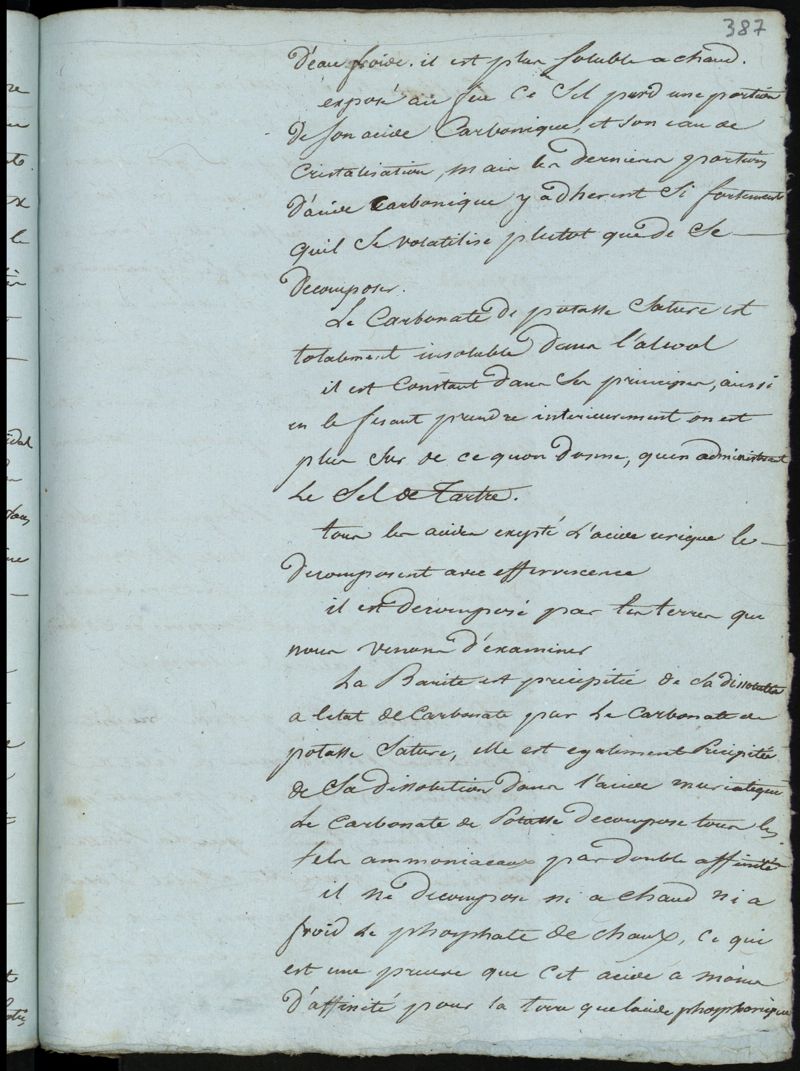 387
d'eau froide. il est plus soluble a chaud.
exposé au feu ce sel perd une portion
de son acide Carbonique, et son eau de
Cristalisation, mais les dernieres portions
d'acide Carbonique y adherent si fortement
quil se volatilise plutot que de se
decomposer.
Le Carbonate de potasse saturé est
totalement insoluble dans l'alcool
il est Constant dans ses principes, aussi
en le fesant prendre interieurement on est
plus sur de ce quon donne, qu'en administrant
Le Sel de Tartre.
tous les acides exepté l'acide urique le
decomposent avec effervescence
il est decomposé par les terres que
nous venons d'examiner
La Barite est precipitée de sa dissolution
a letat de Carbonate par Le Carbonate de
potasse saturé, elle est egalement Precipitée
de sa dissolution dans l'acide muriatique
Le Carbonate de Potasse decompose tous les
sels ammoniacaux par double affinité
il ne decompose ni a chaud ni a
froid Le phosphate de chaux, ce qui
est une preuve que cet acide a moins
D'affinité pour la terre que lacide phosphorique